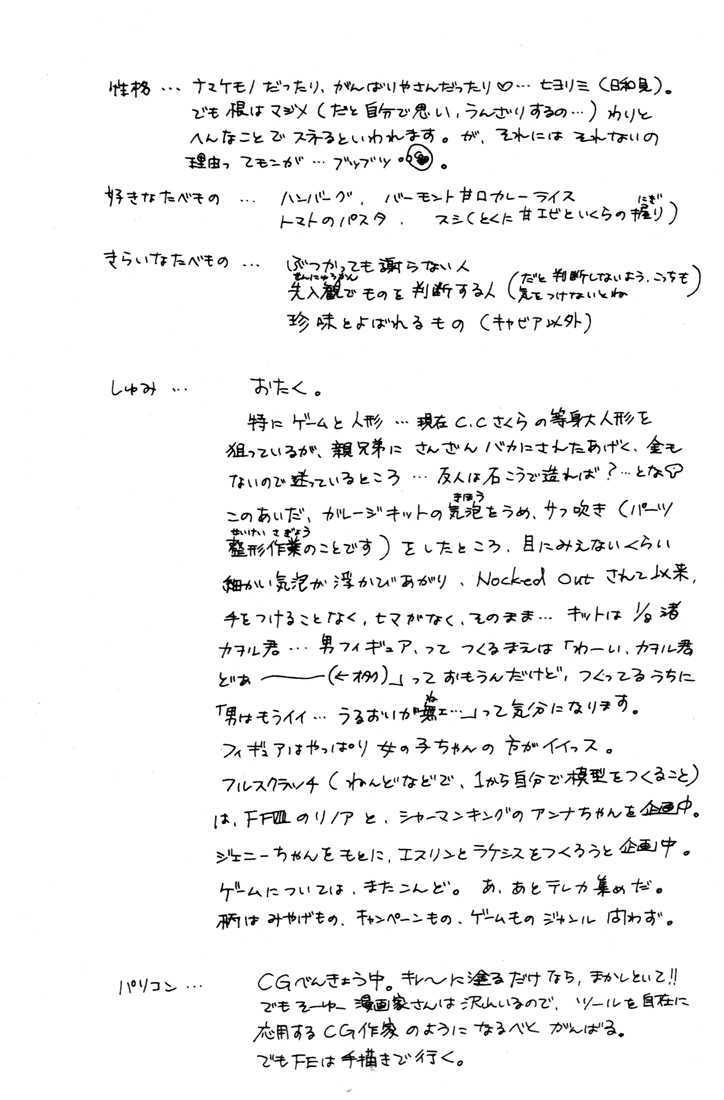 性格 … ナマケモノだったり、がんばりやさんだったり♡… 七ヨリミ（日和見）。
でも根はマジメ（だと自分で思い、うんざりするの…）わりと
へんなことでスネるといわれます。が、それにはそれないの
理由ってモンが… ブツブツ。。
好きなたべもの … ハンバーグ、バーモント甘口カレーライス
トマトのパスタ、スシ（とくに甘エビといくらの握り）
にぎ
きらいなたべもの … ぶつかっても謝らない人
せんにゅうかん
先入観でものを判断する人（だと判断しないよう、こっちも
気をつけないとね）
珍味とよばれるもの（キャビア以外）
しゅみ … おたく。
特にゲームと人形 … 現在C.Cさくらの等身大人形を
狙っているが、親兄弟にさんざんバカにされたあげく、金も
ないので迷っているところ … 友人は石こうで造れば？…とな
きほう
このあいだ、ガレージキットの気泡をうめ、サフ吹き（パーツ
せいけい さぎょう
整形作業のことです）をしたところ、目にみえないくらい
細かい気泡が浮かびあがり、Nocked Outされて以来、
手をつけることなく、ヒマがなく、そのまま… キットは1/8渚
カヲル君 … 男フィギュア、ってつくるまえは「わーい、カヲル君
どぁ――（←オタク）」っておもうんだけど、つくってるうちに
ね
「男はもうイイ… うるおいが無ェ…」って気分になります。
フィギュアはやっぱり女の子ちゃんの方がイイっス。
フルスクラッチ（ねんどなどで、1から自分で模型をつくること）
は、FFⅧのリノアと、シャーマンキングのアンナちゃんを企画中。
ジェニーちゃんをもとに、エスリンとラケシスをつくろうと企画中。
ゲームについては、またこんど。あ、あとテレカ集めだ。
柄はみやげもの、キャンペーンもの、ゲームものジャンル問わず。
パソコン … CGべんきょう中。キレ〜に塗るだけなら、まかしといて!!
でもそーゆー漫画家さんは沢山いるので、ツールを自在に
応用するCG作家のようになるべくがんばる。
でもFEは手描きで行く。